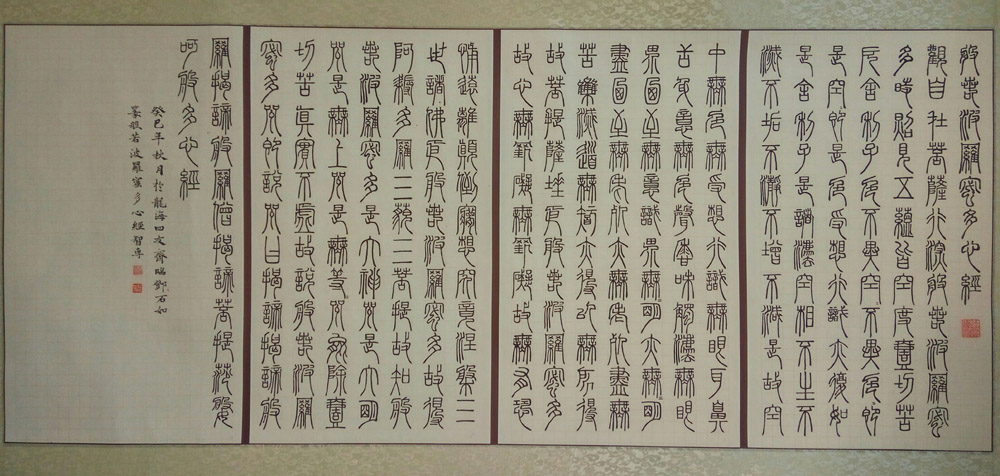 般若波羅蜜多心經
觀自在菩薩行深般若波羅蜜
多時照見五蘊皆空度壹切苦
厄舍利子色不異空不異色即
是空即是色受想行識亦復如
是舍利子是諸法空相不生不
滅不垢不淨不增不減是故空
中無色無受想行識無眼耳鼻
舌身意無色聲香味觸法無眼
界乃至無意識界無明亦無明
盡乃至無老死亦無老死盡無
苦集滅道無智亦得以無所得
故菩提薩埵依般若波羅蜜多
故心無罣礙無罣礙故無有恐
怖遠離顛倒夢想究竟涅槃三
世諸佛依般若波羅蜜多故得
阿耨多羅三藐三菩提故知般
若波羅蜜多是大神咒是大明
咒是無上咒是無等咒能除壹
切苦真實不虛故說般若波羅
蜜多咒即說咒曰揭諦揭諦般
羅揭諦般羅僧揭諦菩提薩婆
呵般多心經
癸巳年秋月於龍海四文齋臨鄧石如
篆般若波羅蜜多心經智專